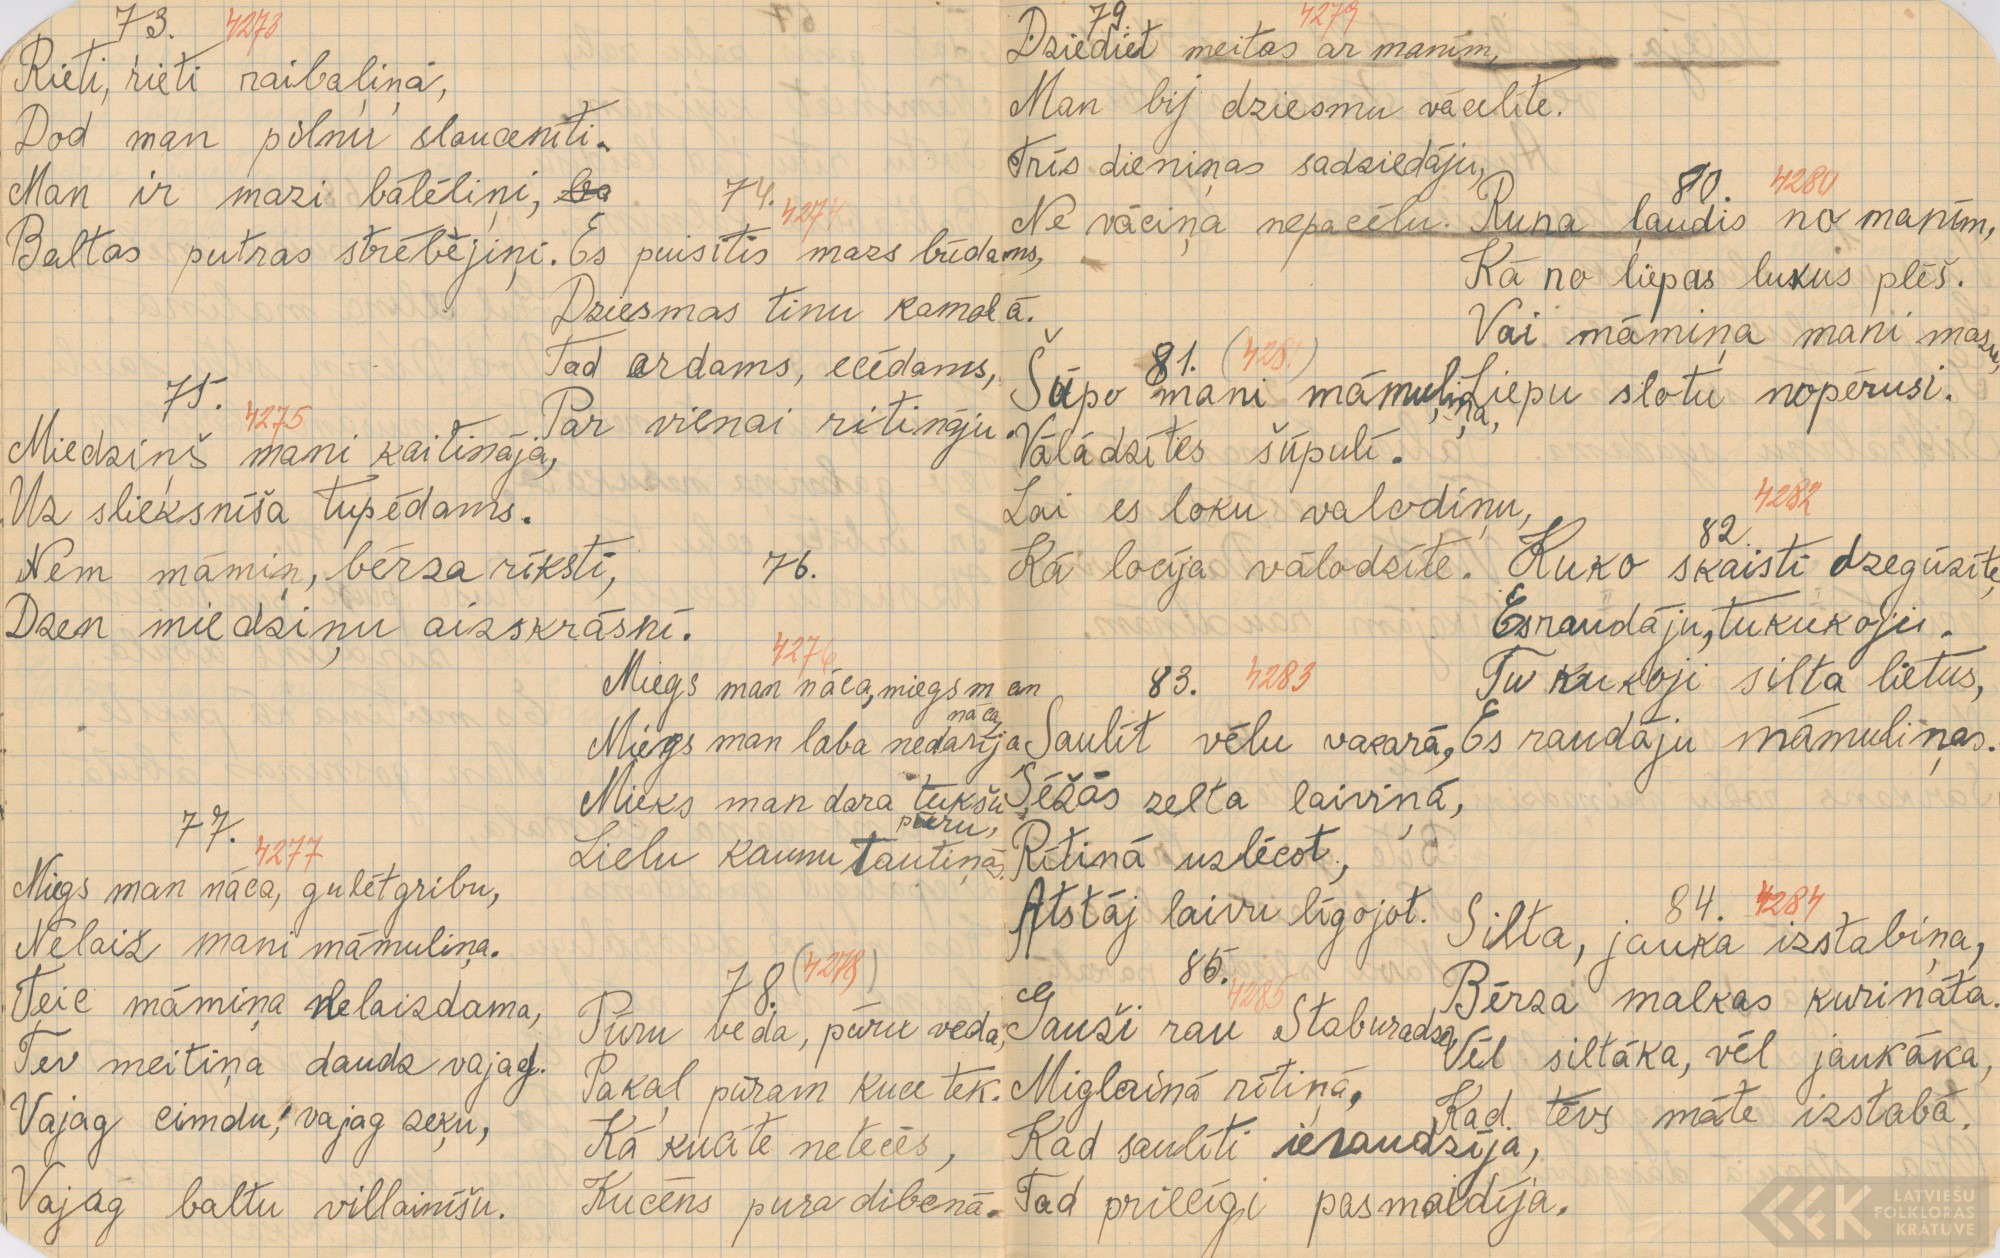 73. 4273
Rieti, rieti raibaļiņā,
Dod man pilnu slaucenīti.
Man ir mazi bālēliņi,
Baltas putras strēbējiņi.
74. 4274
Es puisītis mazs būdams,
Dziesmas tinu kamolā.
Tad ardams, ecēdams,
Par vienai ritināju.
75. 4275
Miedziņš mani kaitināja,
Uz slieksnīša tupēdams.
Ņem māmiņ, bērza rīksti,
Dzen miedziņu aizskrāsni.
76.
4276
Miegs man nāca, miegs man
nāca,
Miegs man laba nedarīja
Mieks man dara tukšu
pūru,
Lielu kaunu tautiņās.
77. 4277
Miegs man nāca, gulēt gribu,
Nelaiž mani māmuliņa.
Teic māmiņa nelaizdama,
Tev meitiņa daudz vajag.
Vajag cimdu, vajag zeķu,
Vajag baltu villainīšu.
78. (4278)
Pūru veda, pūru veda,
Pakaļ pūram kuce tek.
Kā kucīte netecēs,
Kucēns pura dibenā.
79. 4279
Dziediet meitas ar manim,
Man bij dziesmu vācelīte.
Trīs dieniņas sadziedāju,
Ne vāciņa nepacēlu.
80. 4280
Runa ļaudis no manim,
Kā no liepas lukus plēš.
Vai māmiņa mani mazu,
Liepu slotu nopērusi.
81. (4281)
Šūpo mani māmuliņa,
Vālādzītes šūpulī.
Lai es loku valodiņu,
Kā locīja vālodzīte.
82. 4282
Kuko skaisti dzegūzīte,
Es raudāju, tu kukoji.
Tu kukoji silta lietus,
Es raudāju māmuliņas.
83. 4283
Saulīt vēlu vakarā,
Sēžās zelta laiviņā,
Rītiņā uzlēcot,
Atstāj laivu līgojot.
84. 4284
Silta, jauka izstabiņa,
Bērza malkas kurināta.
Vēl siltāka, vēl jaukāka,
Kad tēvs māte izstabā.
85. 4285
Gauži rau Staburadze,
Miglainā rītiņā,
Kad saulīti ieraudzīja,
Tad prilcīgi pasmaidīja.
LATVIEŠU
FOLKLORAS
KRĀTUVE